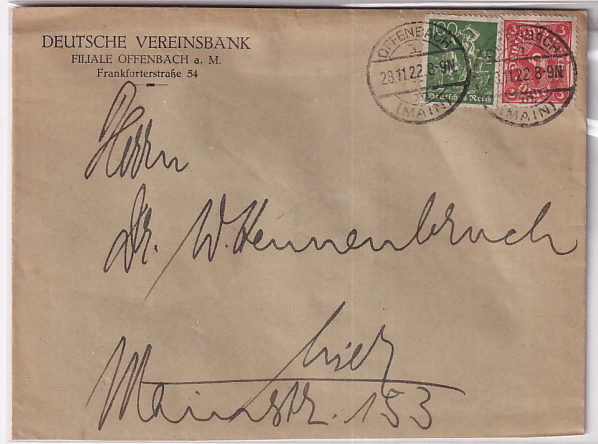 DEUTSCHE VEREINSBANK
FILIALE OFFENBACH a. M.
Frankfurterstraße 54
OFFENBACH
28.11.22.8-9N
(MAIN)
Deutsches Reich
3
OFFENBACH
11.22 8-9N
(MAIN)
Herrn
Dr. W. Hennenbruch
hier
Mainstr. 153